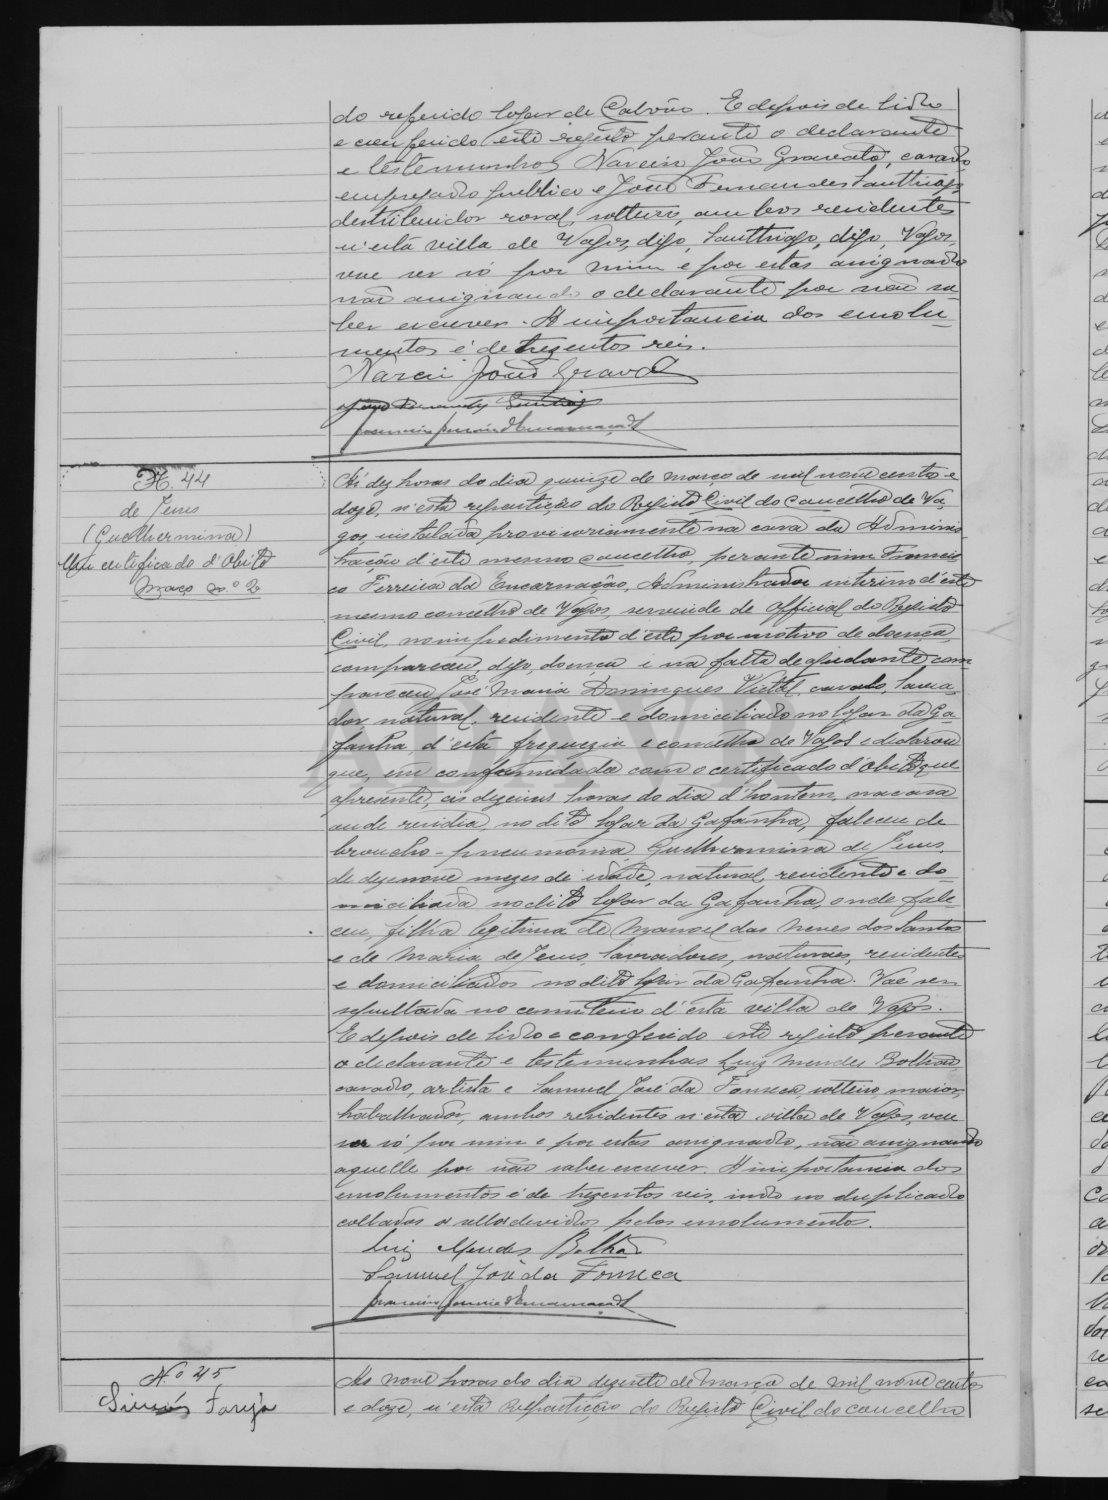 do referido logar de Calvão. E depois de lido
e conferido este registo perante o declarante
e testemunhas Narciso João Gravato, casado,
empregado publico e João Fernandes Santhiago
destribuidor roral, solteiro, ambos residentes
n'esta villa de Vagos, digo, Santhiago, digo, Vagos,
vae ser só por mim e por estas assignado
não assignando o declarante por não sa-
ber escrever. A importancia dos emolu-
mentos é de trezentos reis.
Narciso João Gravato
João Fernandes Santiago
Francisco Ferreira d'Encarnação
N. 44
de Jesus
(Guilhermina)
Um certificado d'obito
Maço nº 2
Ás dez horas do dia quinze de março de mil nove centos e
doze, n'esta repartição do Registo Civil do concelho de Va-
gos, installada provisoriamente na casa da Adminis-
tração d'este mesmo concelho, perante mim Francis-
co Ferreira da Encarnação, Administrador interino d'este
mesmo concelho de Vagos, servindo de official do Registo
Civil, no impedimento d'este por motivo de doença,
compareceu, digo, doença e na falta de ajudante com-
pareceu José Maria Domingues Vidal, casado, lavra-
dor natural, residente e domiciliado no logar da Ga-
fanha, d'esta freguezia e concelho de Vagos e declarou
que, em conformidade com o certificado d'obito que
apresento, ás dezeseis horas do dia d'hontem, na casa
onde residia, no dito logar da Gafanha, faleceu de
broncho-pneumonia Guilhermina de Jesus,
de dezenove mezes de idade, natural, residente e do-
miciliada no dito logar da Gafanha, onde fale-
ceu, filha legitima de Manoel das Neves dos Santos
e de Maria de Jesus, lavradores, naturaes, residentes
e domiciliados no dito logar da Gafanha. Vae ser
sepultada no cemiterio d'esta villa de Vagos.
E depois de lido e conferido este registo perante
o declarante e testemunhas Luiz Mendes Bolhão,
casado, artista e Samuel José da Fonseca, solteiro, maior,
trabalhador, ambos residentes n'esta villa de Vagos, vae
ser só por mim e por estas assignado, não assignando
aquelle por não saber escrever. A importancia dos
emolumentos é de trezentos reis, indo no duplicado
collados os sellos devidos pelos emolumentos.
Luiz Mendes Bolhão
Samuel José da Fonseca
Francisco Ferreira d'Encarnação
N.º 45
Simões Sarijo
As nove horas do dia dezesete de março de mil nove centos
e doze, n'esta Repartição do Registo Civil do concelho